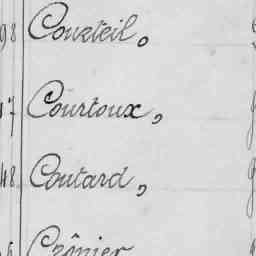 98 Courteil,
17 Courtoux,
48 Coutard,
Crônier